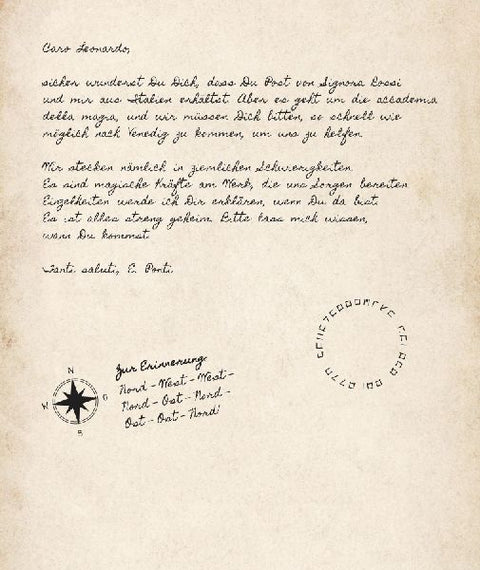 Caro Leonardo,
sicher wunderst Du Dich, dass Du Post von Signora Lossi
und mir aus Italien enhältst. Aber es geht um die accademia
della magia, und wir müssen Dich bitten, so schnell wie
möglich nach Venedig zu kommen, um uns zu helfen.
Wir stecken nämlich in ziemlichen Schwierigkeiten.
Es sind magische Kräfte am Werk, die uns Sorgen bereiten.
Einzelheiten werde ich Dir erklären, wenn Du da bist.
Es ist alles streng geheim. Bitte lass mich wissen,
wann Du kommst.
Tanti saluti, E. Ponti
Zur Erinnerung:
Nord - West - West -
Nord - Ost - Nord -
Ost - Ost - Nord!
N
W
O
S